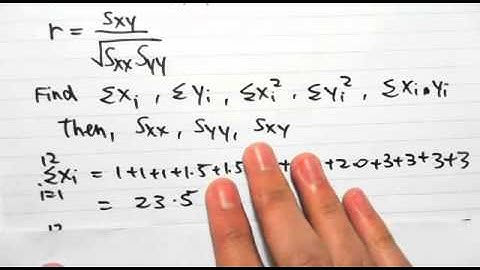 r = Sxy / √Sxx Syy
Find Σxi, Σyi, Σxi², Σyi², Σxi•yi
Then, Sxx, Syy, Sxy
12 Σ i=1 xi = 1+1+1+1.5+1.5 + +2.0+3+3+3+3
= 23.5
12